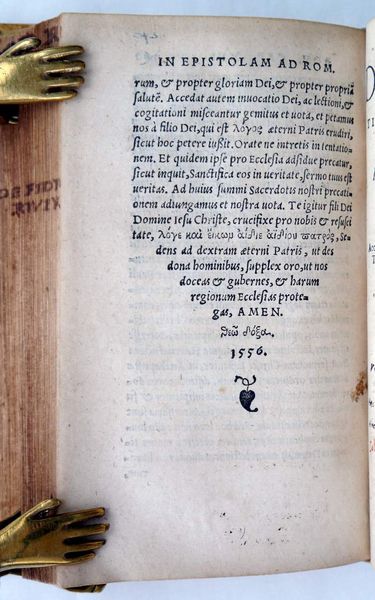 IN EPISTOLAM AD ROM.
rum, & propter gloriam Dei, & propter propriã
salutẽ. Accedat autem inuocatio Dei, ac lectioni, &
cogitationi misceantur gemitus et uota, et petamus
nos à filio Dei, qui est λόγος æterni Patris erudiri,
sicut hoc petere iußit. Orate ne intretis in tentatio-
nem. Et quidem ipse pro Ecclesia adsidue precatur,
sicut inquit, Sanctifica eos in ueritate, sermo tuus est
ueritas. Ad huius summi Sacerdotis nostri precati-
onem adiungamus et nostra uota. Te igitur fili Dei
Domine Iesu Christe, crucifixe pro nobis & resusci
tate, λόγε καὶ ἔικωμ ἀΐδιε ἀϊδίου πατρὸς, Se,
dens ad dextram æterni Patris, ut des
dona hominibus, supplex oro, ut nos
doceas & gubernes, & harum
regionum Ecclesias prote-
gas, AMEN.
θεῷ δόξα.
1556.